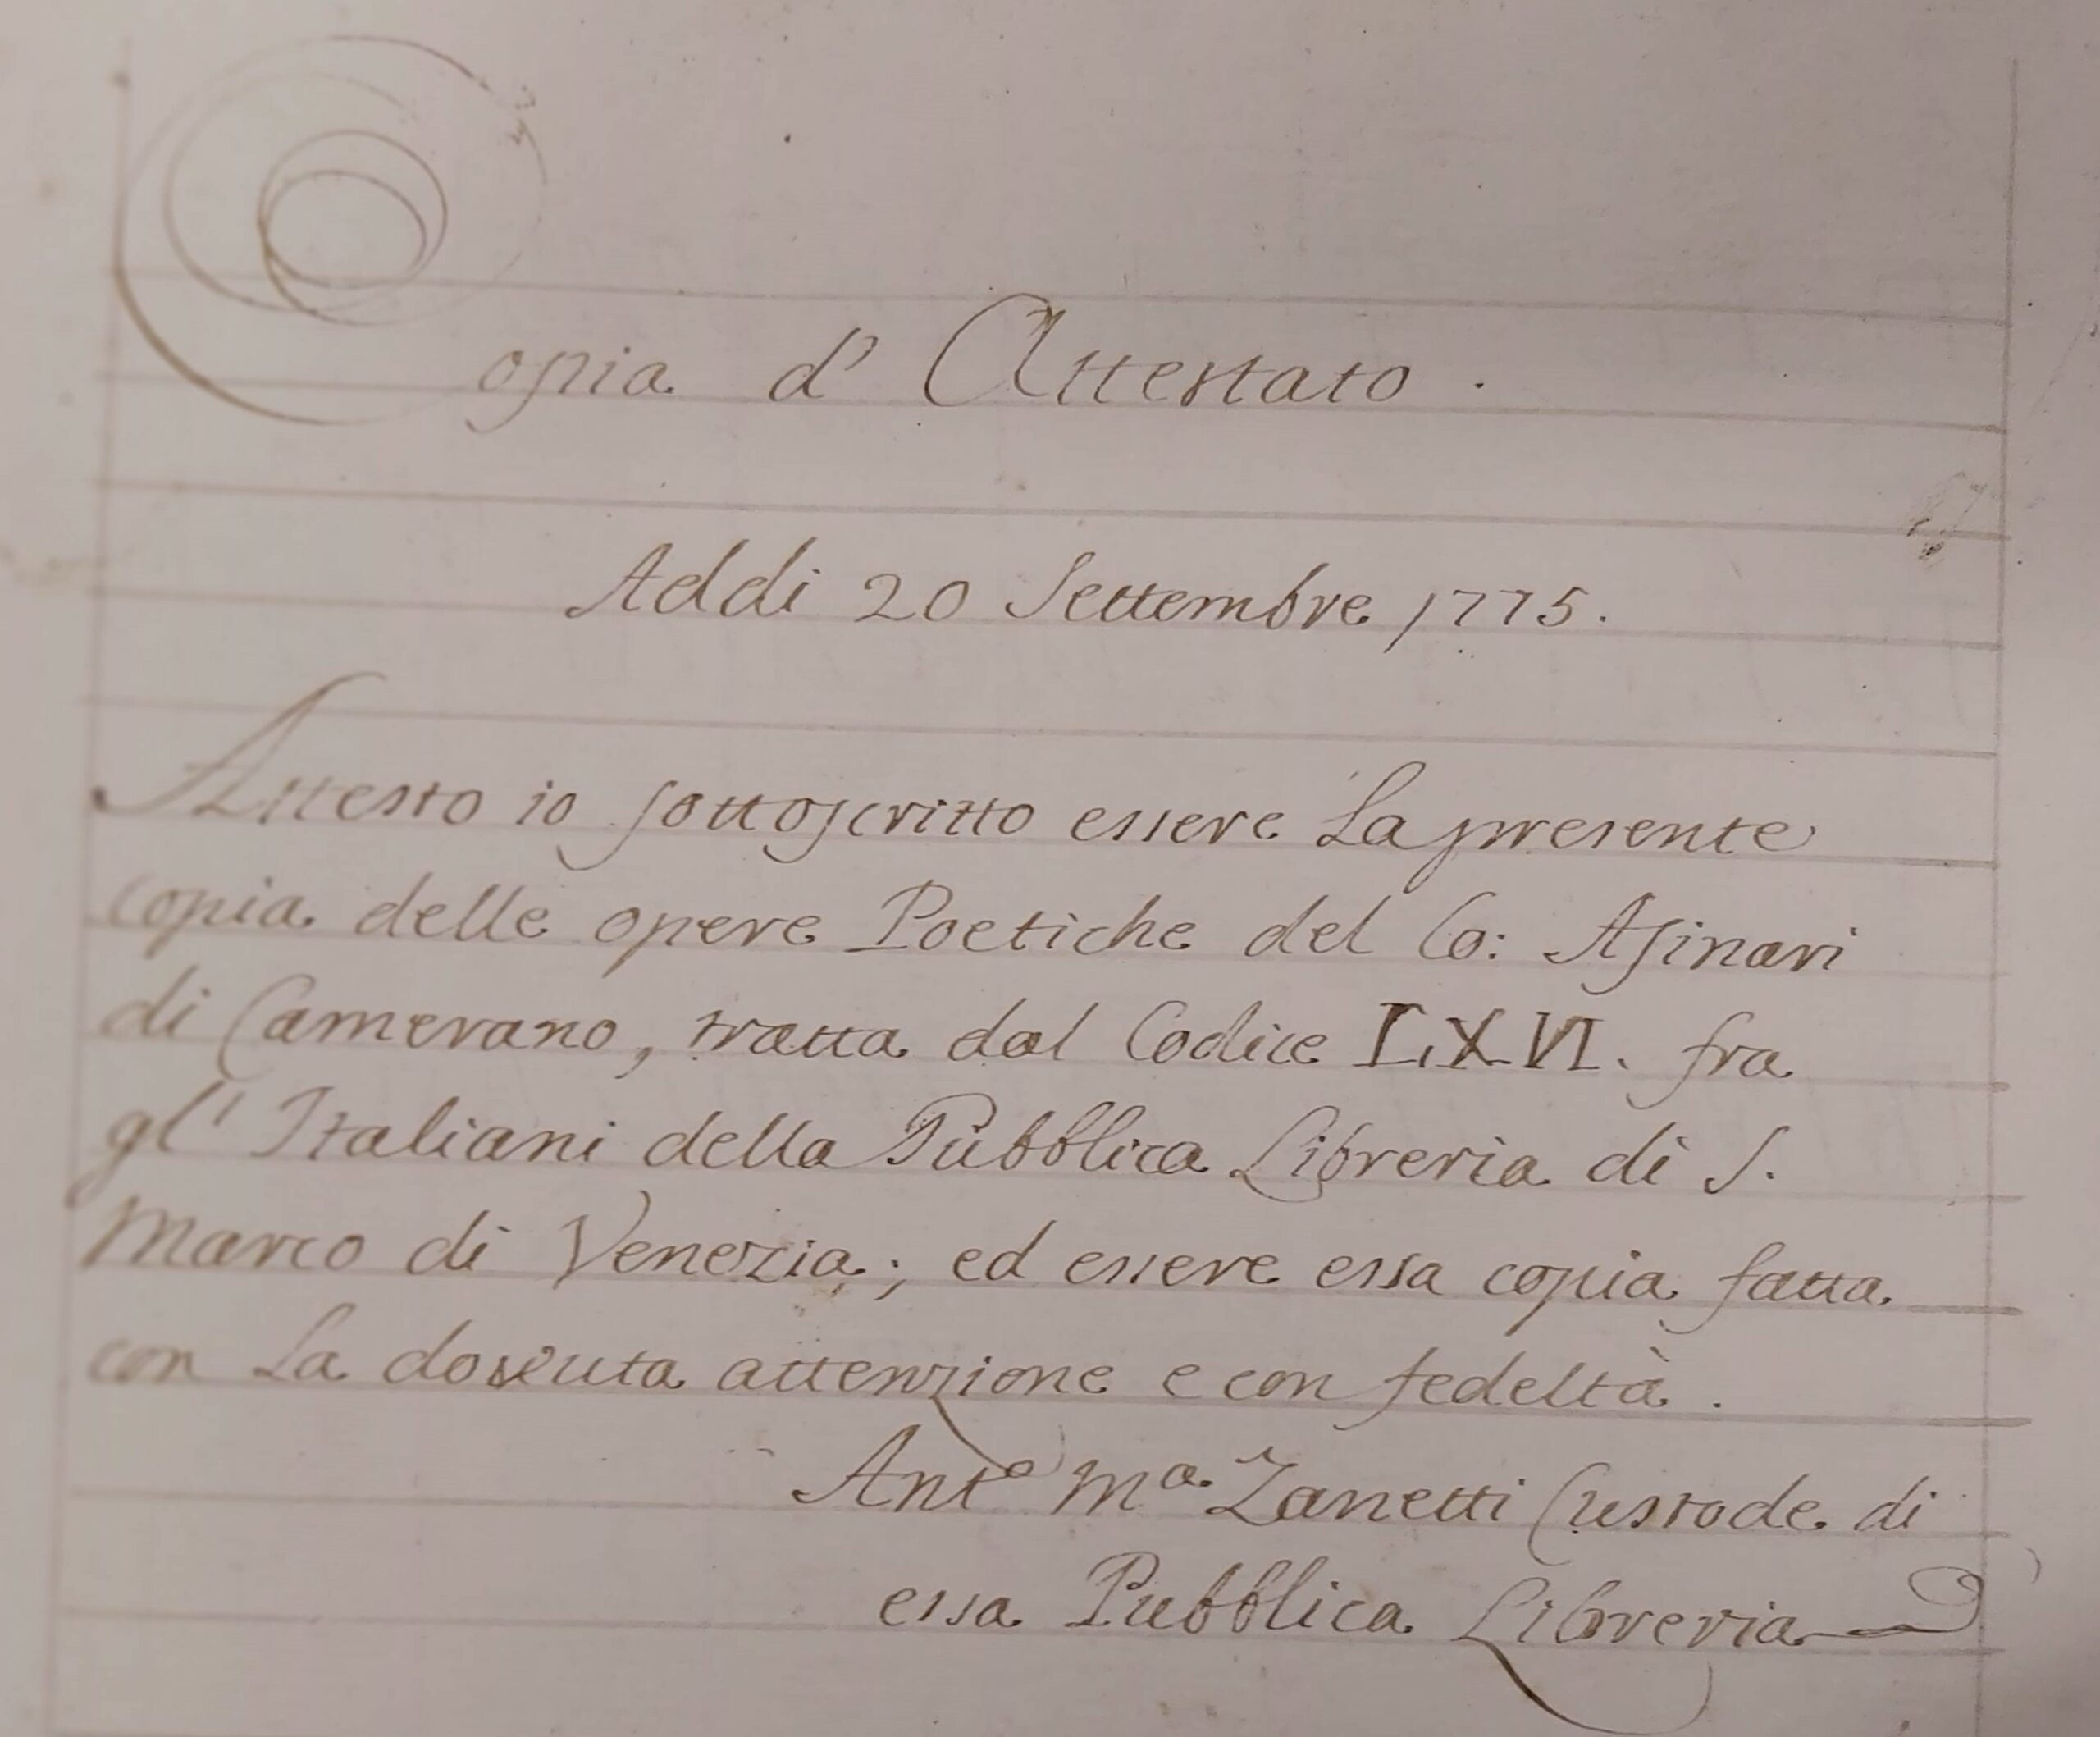 Copia d' Attestato .
Addi 20 Settembre 1775.
Attesto io sottoscritto essere La presente
copia delle opere Poetiche del Co: Asinari
di Camerano, tratta dal Codice LXVI. fra
gl' Italiani della Pubblica Libreria di S.
Marco di Venezia; ed essere essa copia fatta
con La dovuta attenzione e con fedeltà .
Antº Mª Zanetti Custode di
essa Pubblica Libreria